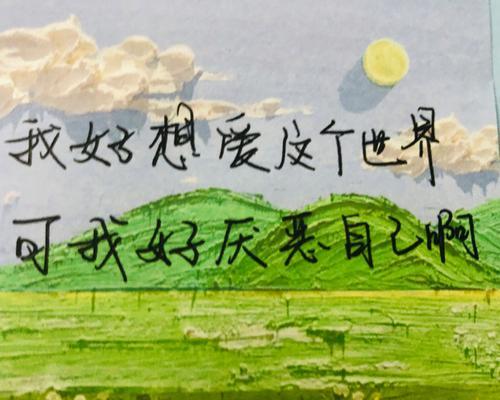 我好想爱这个世界
可我好厌恶自己啊